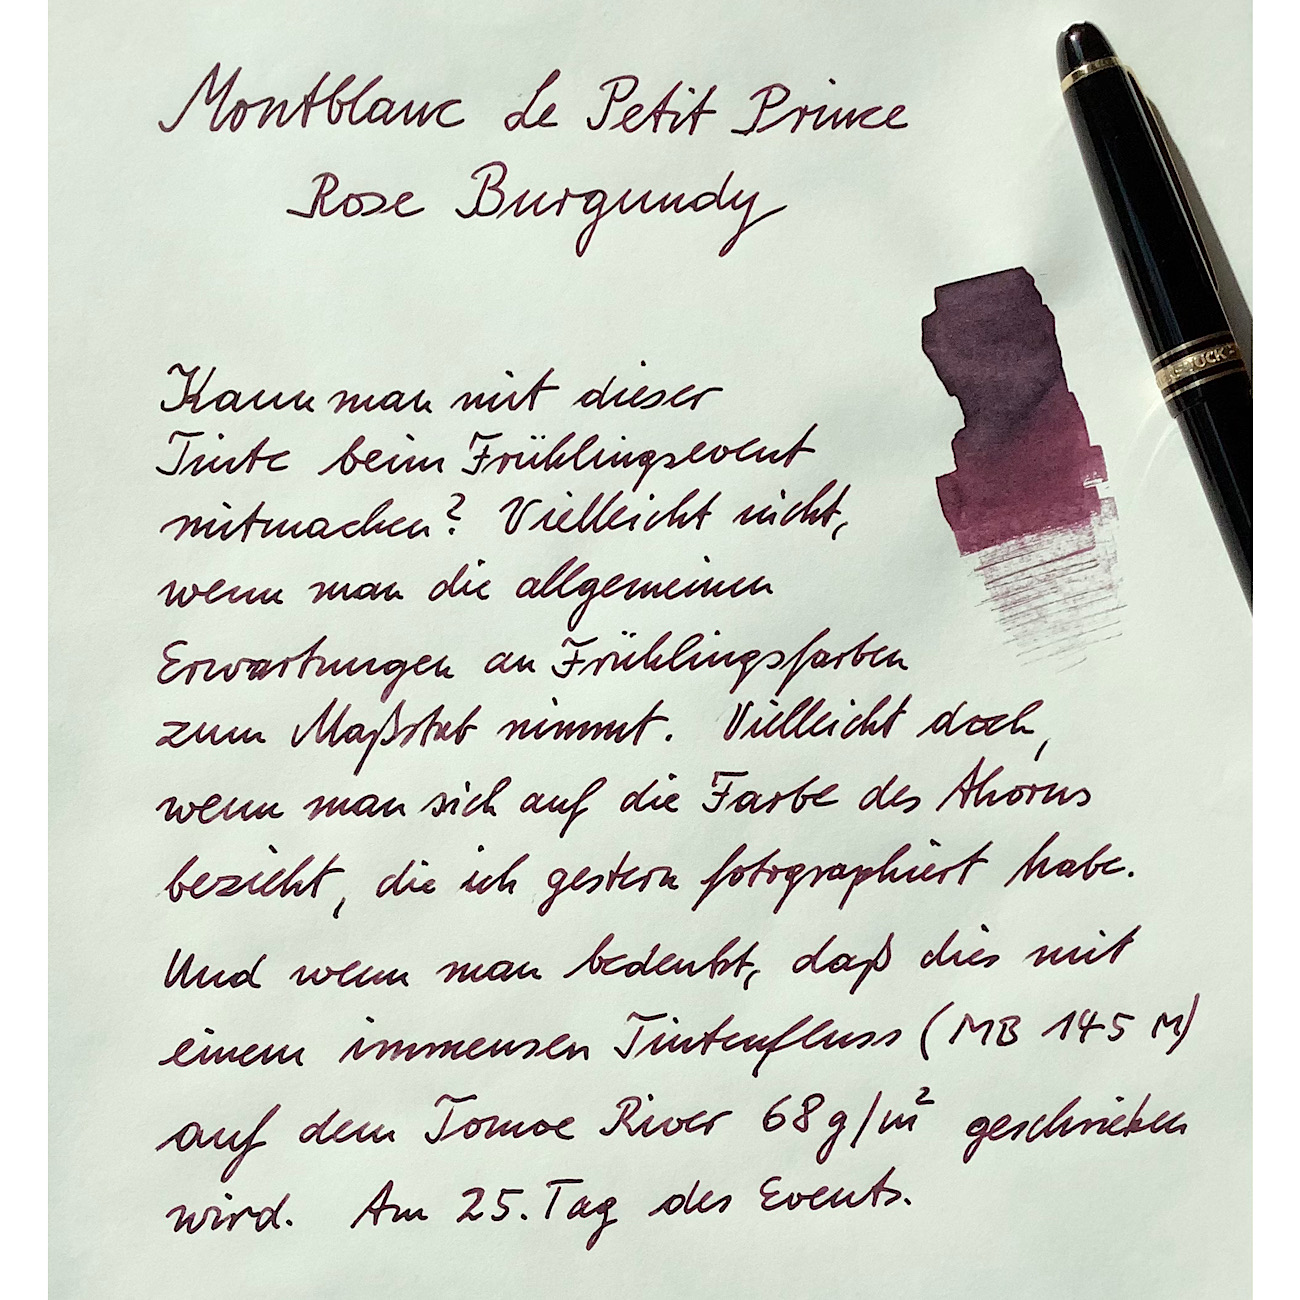 Montblanc Le Petit Prince
Rose Burgundy
Kann man mit dieser
Tinte beim Frühlingsevent
mitmachen? Vielleicht nicht,
wenn man die allgemeinen
Erwartungen an Frühlingsfarben
zum Maßstab nimmt. Vielleicht doch,
wenn man sich auf die Farbe des Ahorns
bezieht, die ich gestern fotographiert habe.
Und wenn man bedenkt, daß dies mit
einem immensen Tintenfluss (MB 145 M)
auf dem Tomoe River 68g/m² geschrieben
wird. Am 25. Tag des Events.